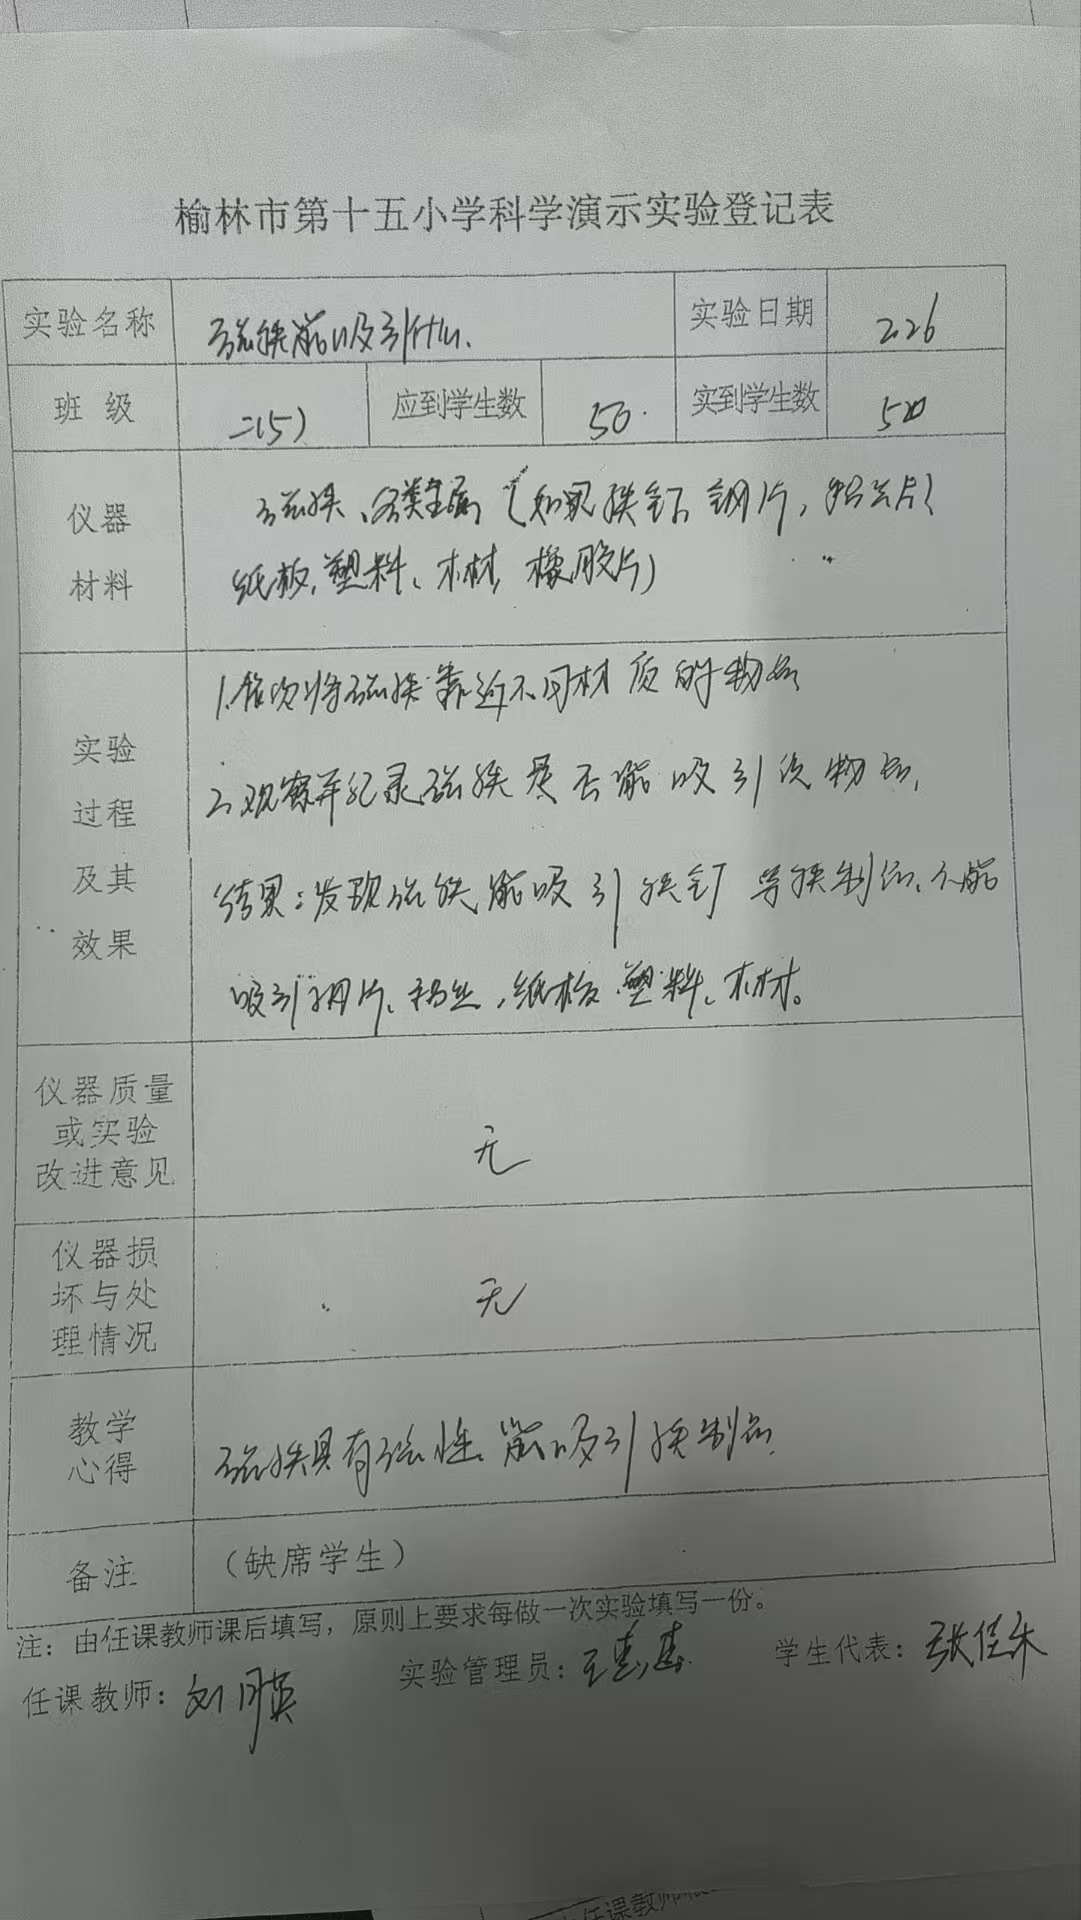 榆林市第十五小学科学演示实验登记表
实验名称 磁铁能吸引什么. 实验日期 2.26
班 级 二(5) 应到学生数 50. 实到学生数 50
仪器
材料
磁铁、各类金属(如果铁钉 铜片,铝片)
纸板,塑料、木材, 橡胶片)
实验
过程
及其
效果
1.依次将磁铁靠近不同材质的物品
2.观察并纪录磁铁是否能吸引该物品,
结果:发现磁铁能吸引铁钉等铁制品、不能
吸引铜片、铝丝,纸板 塑料、木材。
仪器质量
或实验
改进意见
无
仪器损
坏与处
理情况
无
教学
心得
磁铁具有磁性、能吸引铁制品
备注 (缺席学生)
注:由任课教师课后填写,原则上要求每做一次实验填写一份。
任课教师:刘 实验管理员:王 学生代表:张佳
任课教师